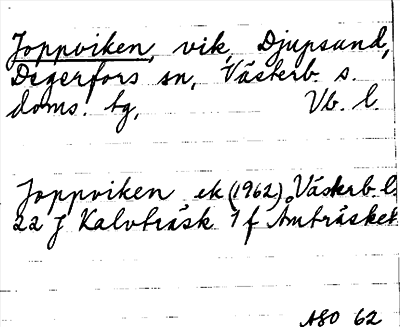 Joppviken, vik, Djupsund,
Degerfors sn, Västerb. s.
doms. tg, Vb. l.
Joppviken ek (1962), Västerb. l.
22 J Kalvträsk 7 f Amträsket
ASO 62